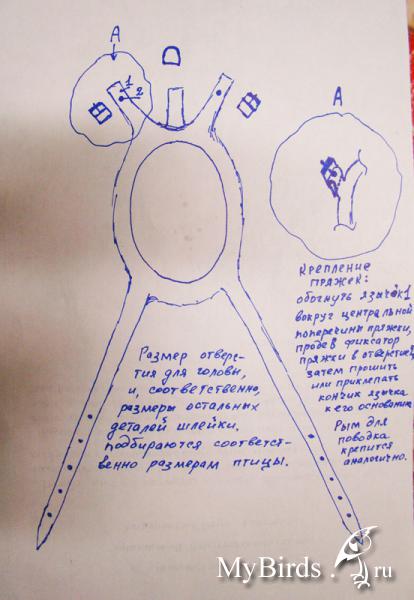 А
1
2
А
Крепление
пряжек:
обогнуть язычок 1
вокруг центральной
поперечины пряжки,
продев фиксатор
пряжки в отверстие 2,
затем прошить
или приклепать
кончик язычка
к его основанию
Рым для
поводка
крепится
аналогично.
Размер отверс-
тия для головы,
и, соответственно,
размеры остальных
деталей шлейки.
подбираются соответст-
венно размерам птицы.
MyBirds.ru